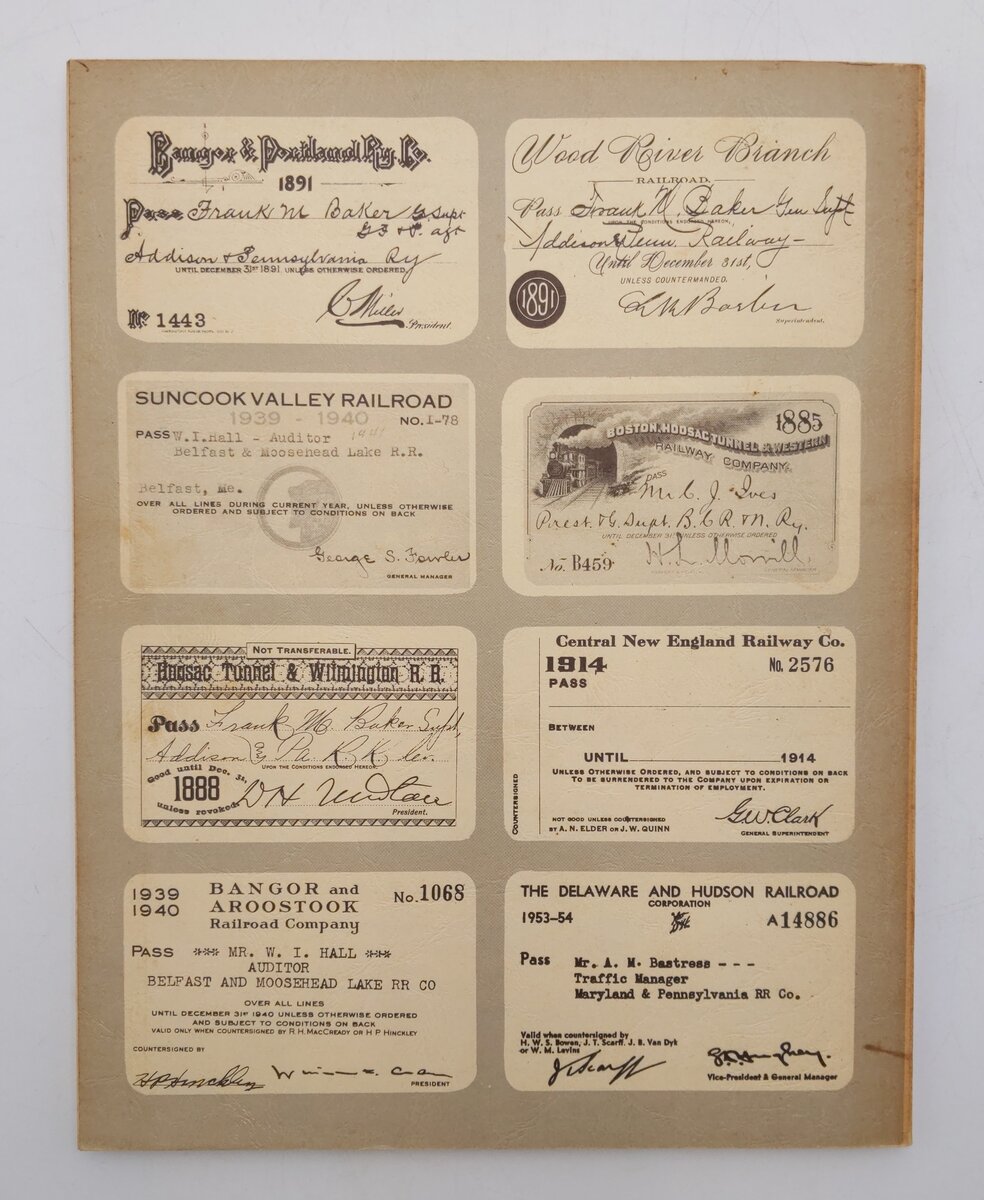 Bangor & Portland Ry. Co.
1891
Pass Frank M Baker G Supt
G F & P. agt
Addison & Pennsylvania Ry
UNTIL DECEMBER 31ST 1891 UNLESS OTHERWISE ORDERED
No 1443
President.
Wood River Branch
RAILROAD.
Pass Frank M. Baker Gen Supt
UPON THE CONDITIONS ENDORSED HEREON,
Addison & Penn. Railway
Until December 31st,
1891
UNLESS COUNTERMANDED.
Superintendent.
SUNCOOK VALLEY RAILROAD
1939 - 1940
NO. I-78
PASS W.I.Hall - Auditor
Belfast & Moosehead Lake R.R.
Belfast, Me.
OVER ALL LINES DURING CURRENT YEAR, UNLESS OTHERWISE
ORDERED AND SUBJECT TO CONDITIONS ON BACK
George S. Fowler
GENERAL MANAGER
1885
BOSTON, HOOSAC TUNNEL & WESTERN
RAILWAY COMPANY.
PASS
Mr C. J. Ives
Prest. & G. Supt. B. C. R. & N. Ry.
UNTIL DECEMBER 31ST UNLESS OTHERWISE ORDERED
No. B459
NOT TRANSFERABLE.
Hoosac Tunnel & Wilmington R. R.
Pass Frank M. Baker Supt,
Addison & Pa. R. R. Co.
UPON THE CONDITIONS ENDORSED HEREON.
Good until Dec. 31,
1888
unless revoked
President.
Central New England Railway Co.
1914
No. 2576
PASS
BETWEEN
UNTIL 1914
UNLESS OTHERWISE ORDERED, AND SUBJECT TO CONDITIONS ON BACK
TO BE SURRENDERED TO THE COMPANY UPON EXPIRATION OR
TERMINATION OF EMPLOYMENT.
COUNTERSIGNED
NOT GOOD UNLESS COUNTERSIGNED
BY A. N. ELDER OR J. W. QUINN
G.W. Clark
GENERAL SUPERINTENDENT
1939
1940
BANGOR and
AROOSTOOK
Railroad Company
No. 1068
PASS *** MR. W. I. HALL ***
AUDITOR
BELFAST AND MOOSEHEAD LAKE RR CO
OVER ALL LINES
UNTIL DECEMBER 31ST 1940 UNLESS OTHERWISE ORDERED
AND SUBJECT TO CONDITIONS ON BACK
VALID ONLY WHEN COUNTERSIGNED BY R. H. MACCREADY OR H P HINCKLEY
COUNTERSIGNED BY
H P Hinckley
PRESIDENT
THE DELAWARE AND HUDSON RAILROAD
CORPORATION
1953-54
A14886
Pass Mr. A. M. Bastress - - -
Traffic Manager
Maryland & Pennsylvania RR Co.
Valid when countersigned by
H. W. S. Bowen, J. T. Scarff, J. B. Van Dyk
or W. M. Levins
J T Scarff
Vice-President & General Manager